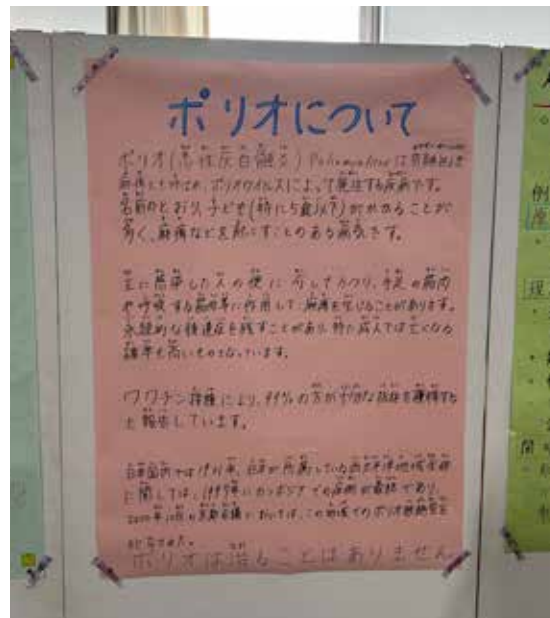 ポリオについて
ポリオ(急性灰白髄炎) は
麻痺とも呼ばれ、ポリオウイルスによって発生する疾病です。
名前のとおり子ども(特に5歳以下)がかかることが
多く、麻痺などを起こすことのある病気です。
主に感染した人の便に 手足の筋肉
や呼吸する筋肉等に作用して、麻痺を生じることがあります。
永続的な後遺症を残すことがあり、特に成人では亡くなる
確率も高いものとなっています。
ワクチン接種により、99%の方が十分な抗体を獲得する
と報告しています。
日本国内では 日本が所属している西太平洋地域全体
に関しては、1997年にカンボジアでの症例が最終であり、
2000年10月の京都会議においては、この地域でのポリオ根絶宣言
ポリオは治ることはありません